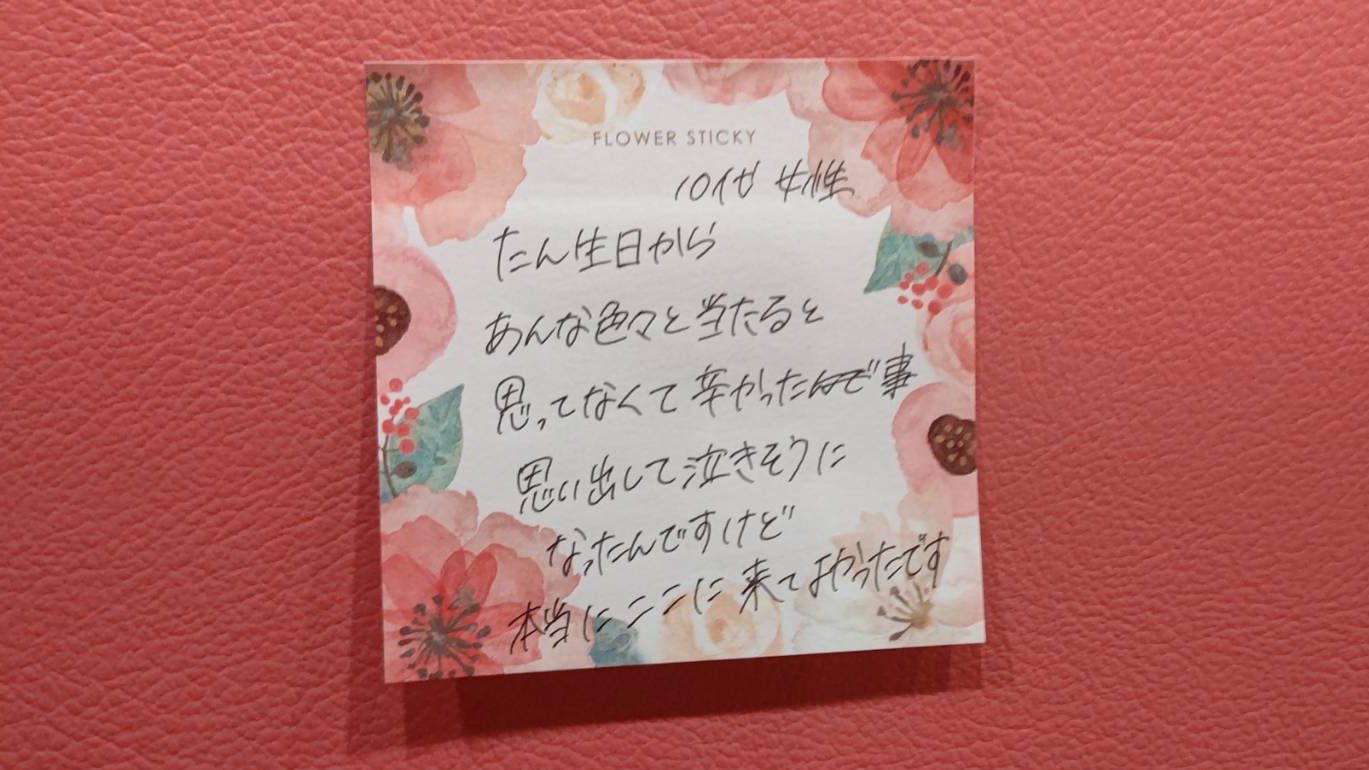 FLOWER STICKY
10代 女性
たん生日から
あんな色々と当たると
思ってなくて辛かった事
思い出して泣きそうに
なったんですけど
本当にここに来てよかったです